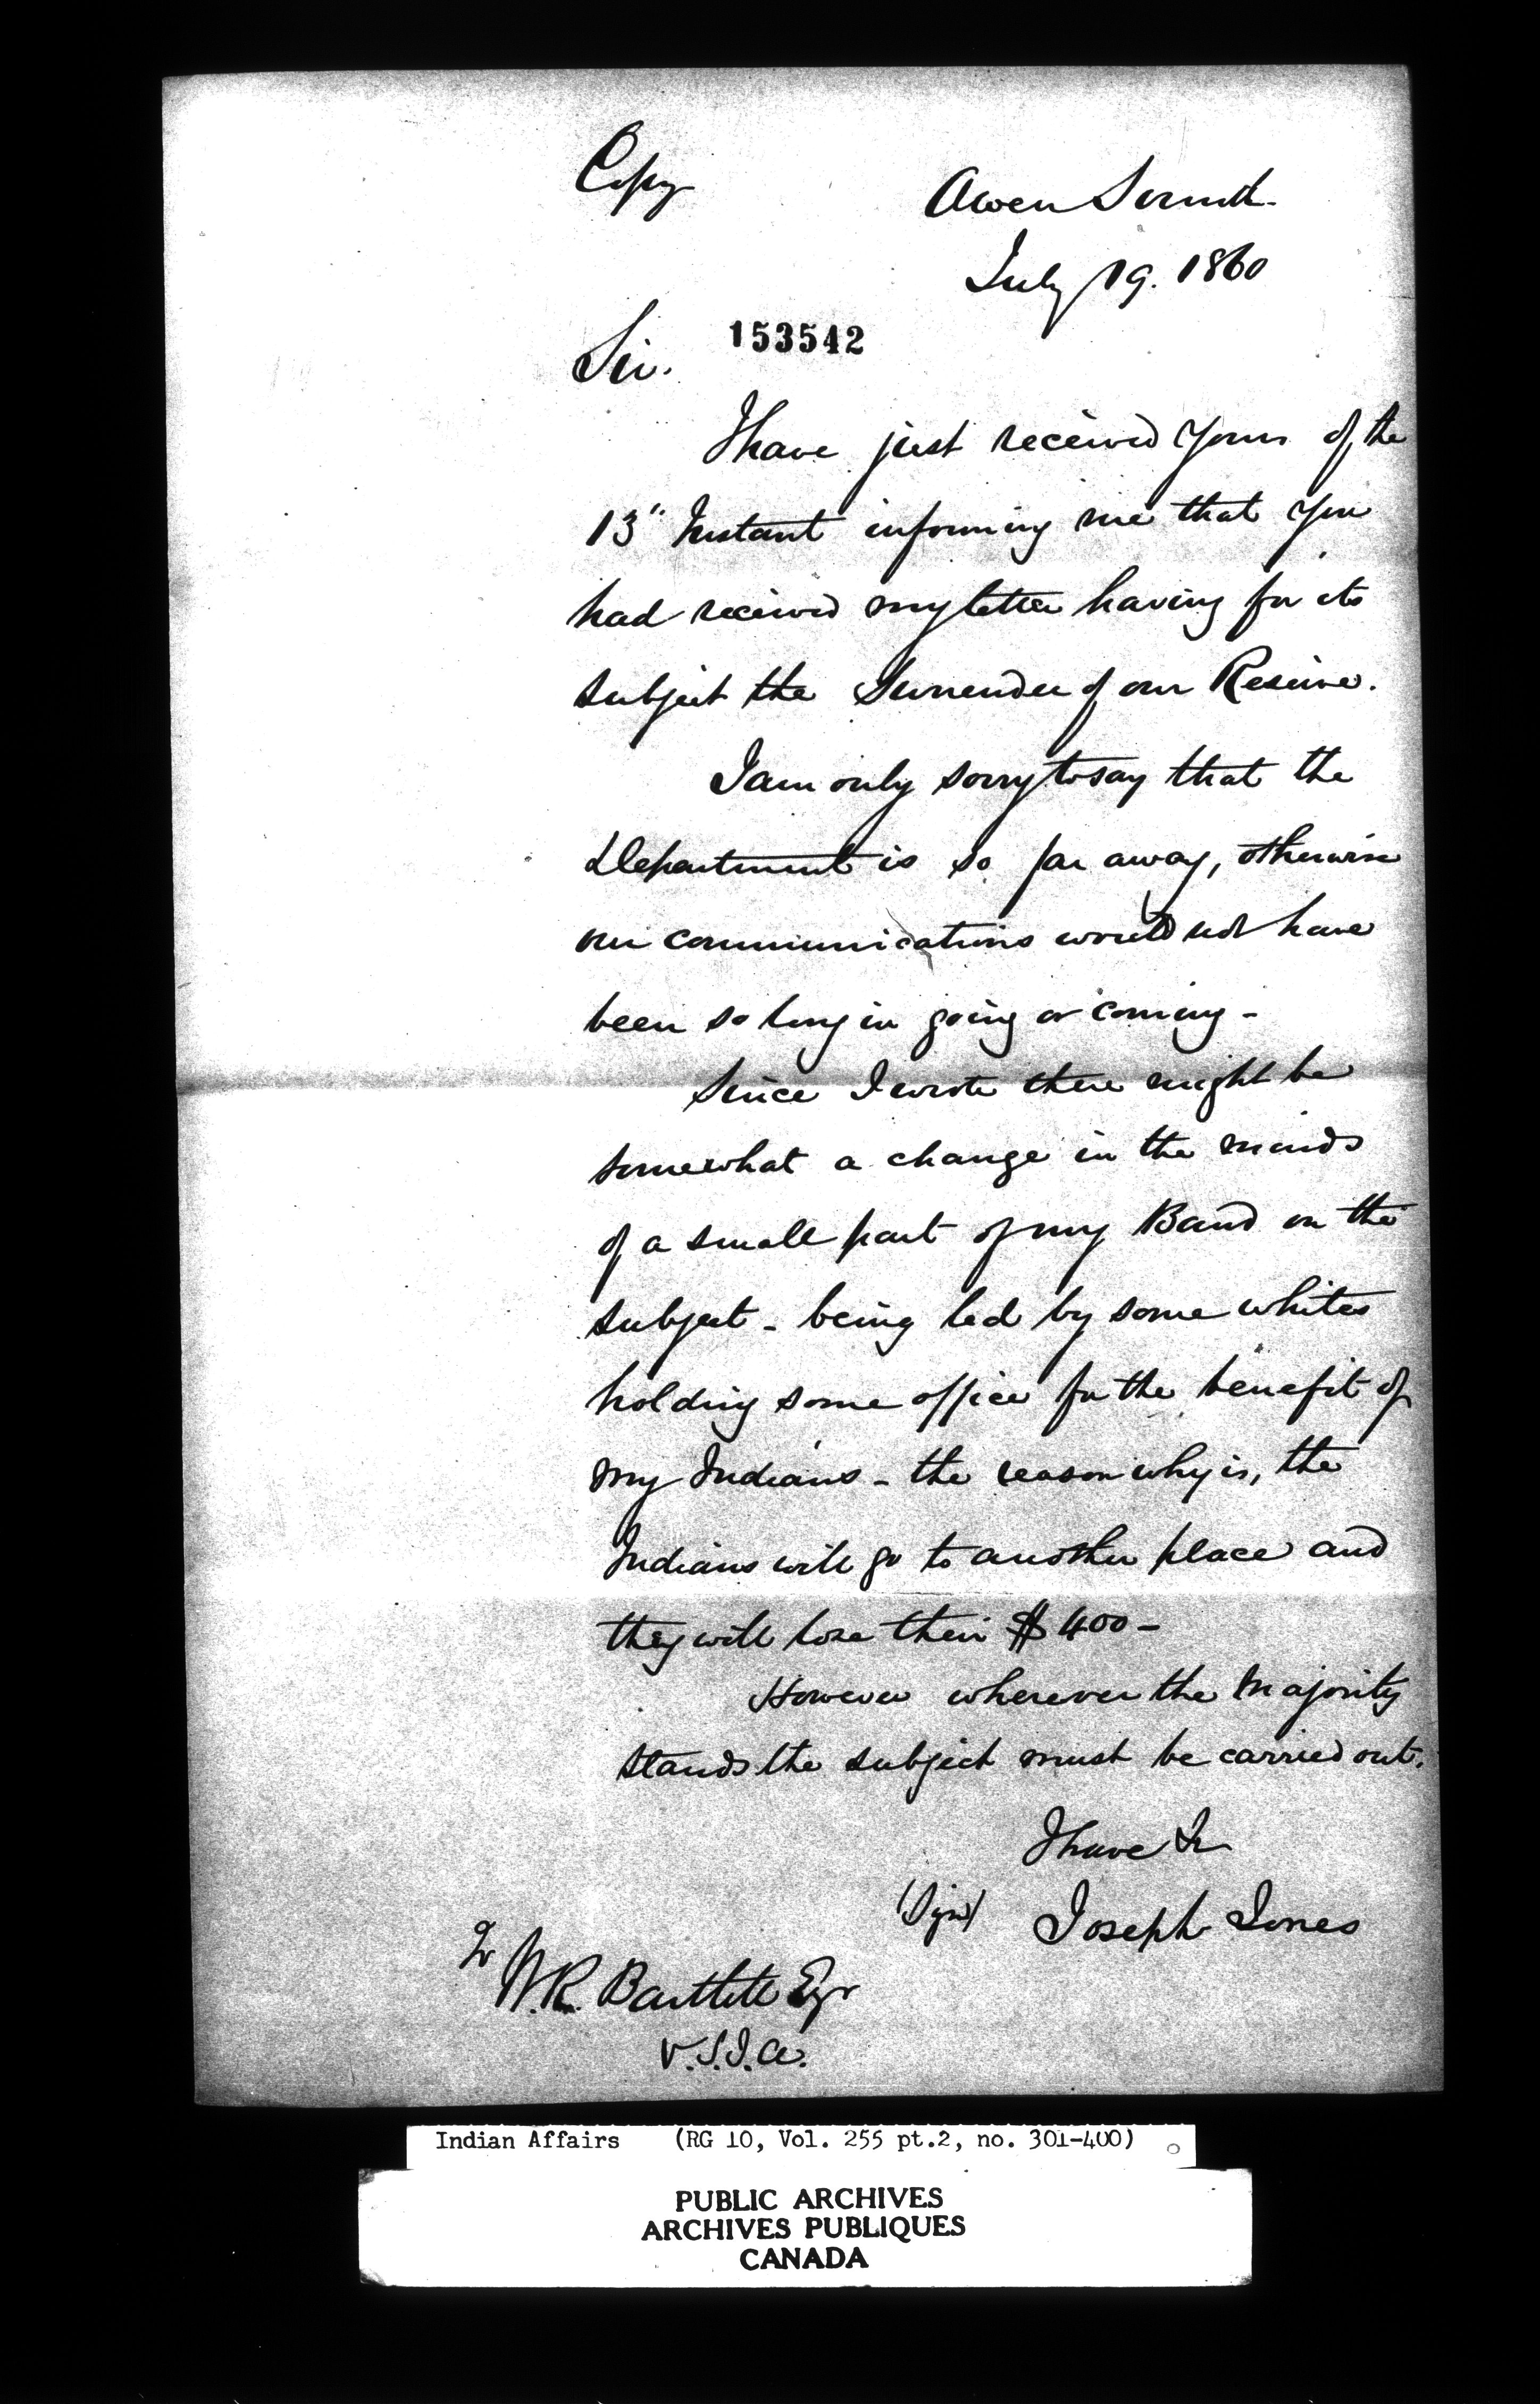 Copy
Owen Sound
July 19. 1860
153542
Sir.
I have just received yours of the
13" Instant informing me that you
had received my letter having for its
subject the Surrender of our Reserve.
I am only sorry to say that the
Department is so far away, otherwise
our communications would not have
been so long in going or coming -
Since I wrote there might be
somewhat a change in the minds
of a small part of my Band on the
subject - being led by some whites
holding some office for the benefit of
my Indians - the reason why is, the
Indians will go to another place and
they will lose their $400 -
However wherever the Majority
stands the subject must be carried out.
I have &c
(Signd) Joseph Jones
To
W.R. Bartlett Esqr
V.S.I.A.
Indian Affairs (RG 10, Vol. 255 pt.2, no. 301-400)
PUBLIC ARCHIVES
ARCHIVES PUBLIQUES
CANADA